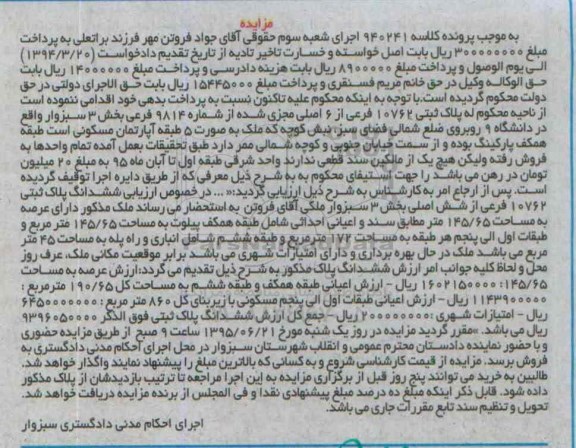 مزایده
به موجب پرونده کلاسه ۹۴۰۲۴۱ اجرای شعبه سوم حقوقی آقای جواد فروتن مهر فرزند براتعلی به پرداخت
مبلغ ۳۰۰۰۰۰۰۰۰ ریال بابت اصل خواسته و خسارت تاخیر تادیه از تاریخ تقدیم دادخواست (۱۳۹۴/۳/۲۰)
الی یوم الوصول و پرداخت مبلغ ۸۹۰۰۰۰۰ ریال بابت هزینه دادرسی و پرداخت مبلغ ۱۴۰۰۰۰۰۰ ریال بابت
حق الوکاله وکیل در حق خانم مریم فسنقری و پرداخت مبلغ ۱۵۴۴۵۰۰۰ ریال بابت حق الاجرای دولتی در حق
دولت محکوم گردیده است.با توجه به اینکه محکوم علیه تاکنون نسبت به پرداخت بدهی خود اقدامی ننموده است
از ناحیه محکوم له پلاک ثبتی ۱۰۷۶۲ فرعی از ۶ اصلی مجزی شده از شماره ۹۸۱۴ فرعی بخش ۳ سبزوار واقع
در دانشگاه ۹ روبروی ضلع شمالی فضای سبز، نبش کوچه که ملک به صورت ۵ طبقه آپارتمان مسکونی است طبقه
همکف پارکینگ بوده و از سمت خیابان جنوبی و کوچه شمالی ممر دارد طبق تحقیقات بعمل آمده تمام واحدها به
فروش رفته ولیکن هیچ یک از مالکین سند قطعی ندارند واحد شرقی طبقه اول تا آبان ماه ۹۵ به مبلغ ۲۰ میلیون
تومان در رهن می باشد را جهت استیفای محکوم به به شرح ذیل معرفی که از طریق دایره اجرا توقیف گردیده
است. پس از ارجاع امر به کارشناس به شرح ذیل ارزیابی گردید:«... در خصوص ارزیابی ششدانگ پلاک ثبتی
۱۰۷۶۲ فرعی از شش اصلی بخش ۳ سبزوار ملکی آقای فروتن به استحضار می رساند ملک مذکور دارای عرصه
به مساحت ۱۴۵/۶۵ متر مطابق سند و اعیانی احداثی شامل طبقه همکف پیلوت به مساحت ۱۴۵/۶۵ متر مربع و
طبقات اول الی پنجم هر طبقه به مساحت ۱۷۲ مترمربع و طبقه ششم شامل انباری و راه پله به مساحت ۴۵ متر
مربع می باشد ملک در حال بهره برداری و دارای امتیازات شهری می باشد برابر موقعیت مکانی ملک، عرف روز
محل و لحاظ کلیه جوانب امر ارزش ششدانگ پلاک مذکور به شرح ذیل تقدیم می گردد:ارزش عرصه به مساحت
۱۴۵/۶۵: ۱۶۰۲۱۵۰۰۰۰ ریال - ارزش اعیانی طبقه همکف و طبقه ششم به مساحت کل ۱۹۰/۶۵ مترمربع :
۱۱۴۳۹۰۰۰۰۰ ریال - ارزش اعیانی طبقات اول الی پنجم مسکونی با زیربنای کل ۸۶۰ متر مربع : ۶۴۵۰۰۰۰۰۰۰
ریال - امتیازات شهری : ۲۰۰۰۰۰۰۰۰ ریال - جمع کل ارزش ششدانگ پلاک ثبتی فوق الذکر ۹۳۹۶۰۵۰۰۰۰
ریال می باشد. »مقرر گردید مزایده در روز یک شنبه مورخ ۱۳۹۵/۰۶/۲۱ ساعت ۹ صبح از طریق مزایده حضوری
و با حضور نماینده دادستان محترم عمومی و انقلاب شهرستان سبزوار در محل اجرای احکام مدنی دادگستری به
فروش برسد. مزایده از قیمت کارشناسی شروع و به کسانی که بالاترین مبلغ را پیشنهاد نمایند واگذار خواهد شد.
طالبین به خرید می توانند پنج روز قبل از برگزاری مزایده به این اجرا مراجعه تا ترتیب بازدیدشان از پلاک مذکور
داده شود. قابل ذکر اینکه مبلغ ده درصد مبلغ پیشنهادی نقدا و فی المجلس از برنده مزایده دریافت خواهد شد.
تحویل و تنظیم سند تابع مقررات جاری می باشد.
اجرای احکام مدنی دادگستری سبزوار